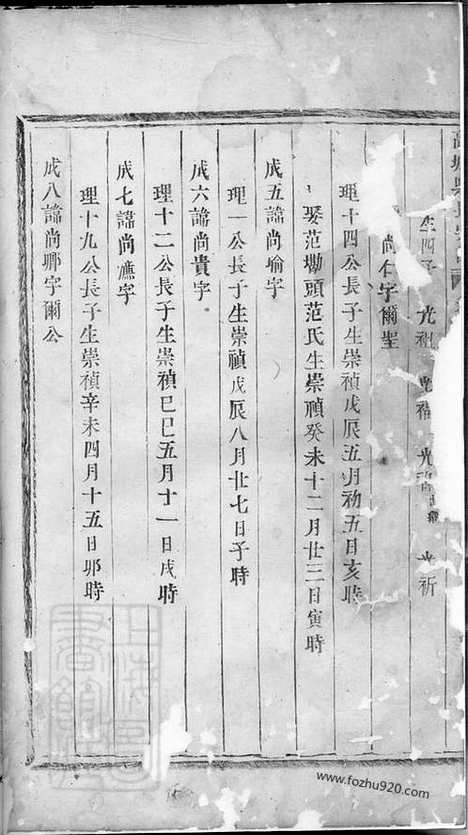 生四子 光祖 光 光 光祈
尚仁字爾聖
理十四公長子生崇禎戊辰五月初五日亥時
娶范墈頭范氏生崇禎癸未十二月廿三日寅時
成五諱尚瑜字
理一公長子生崇禎戊辰八月廿七日子時
成六諱尚貴字
理十二公長子生崇禎己巳五月十一日戌時
成七諱尚應字
理十九公長子生崇禎辛未四月十五日卯時
成八諱尚卿字爾公
上海圖書館藏
www.fozhu920.com